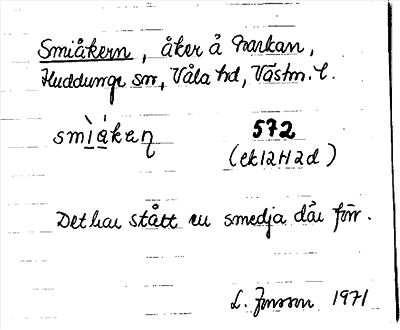 Smiåkern, åker å Harkan,
Huddunge sn, Våla hd, Västm. l.
smìákaɳ 572
(ek 12H2d)
Det har stått en smedja där förr.
L. Jonsson 1971